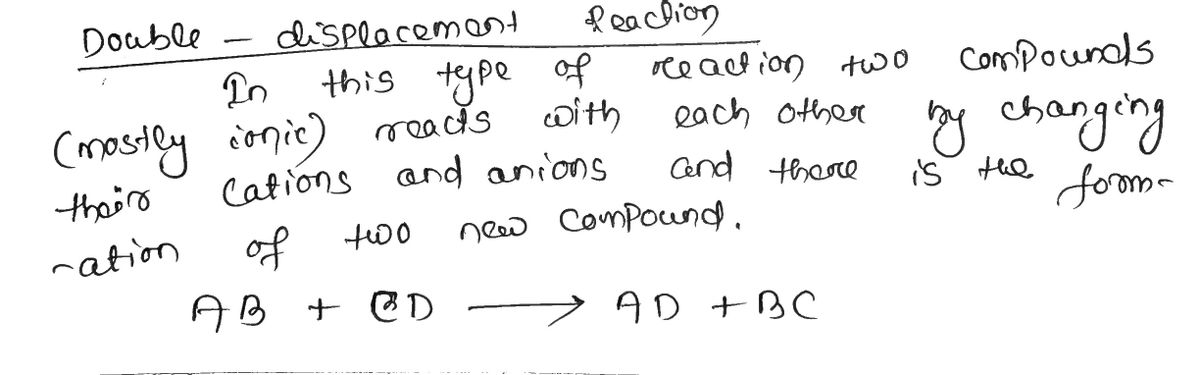 Double - displacement Reaction
In this type of reaction two compounds
(mostly ionic) reacts with each other by changing
their cations and anions and there is the form-
-ation of two new compound.
AB + CD → AD + BC